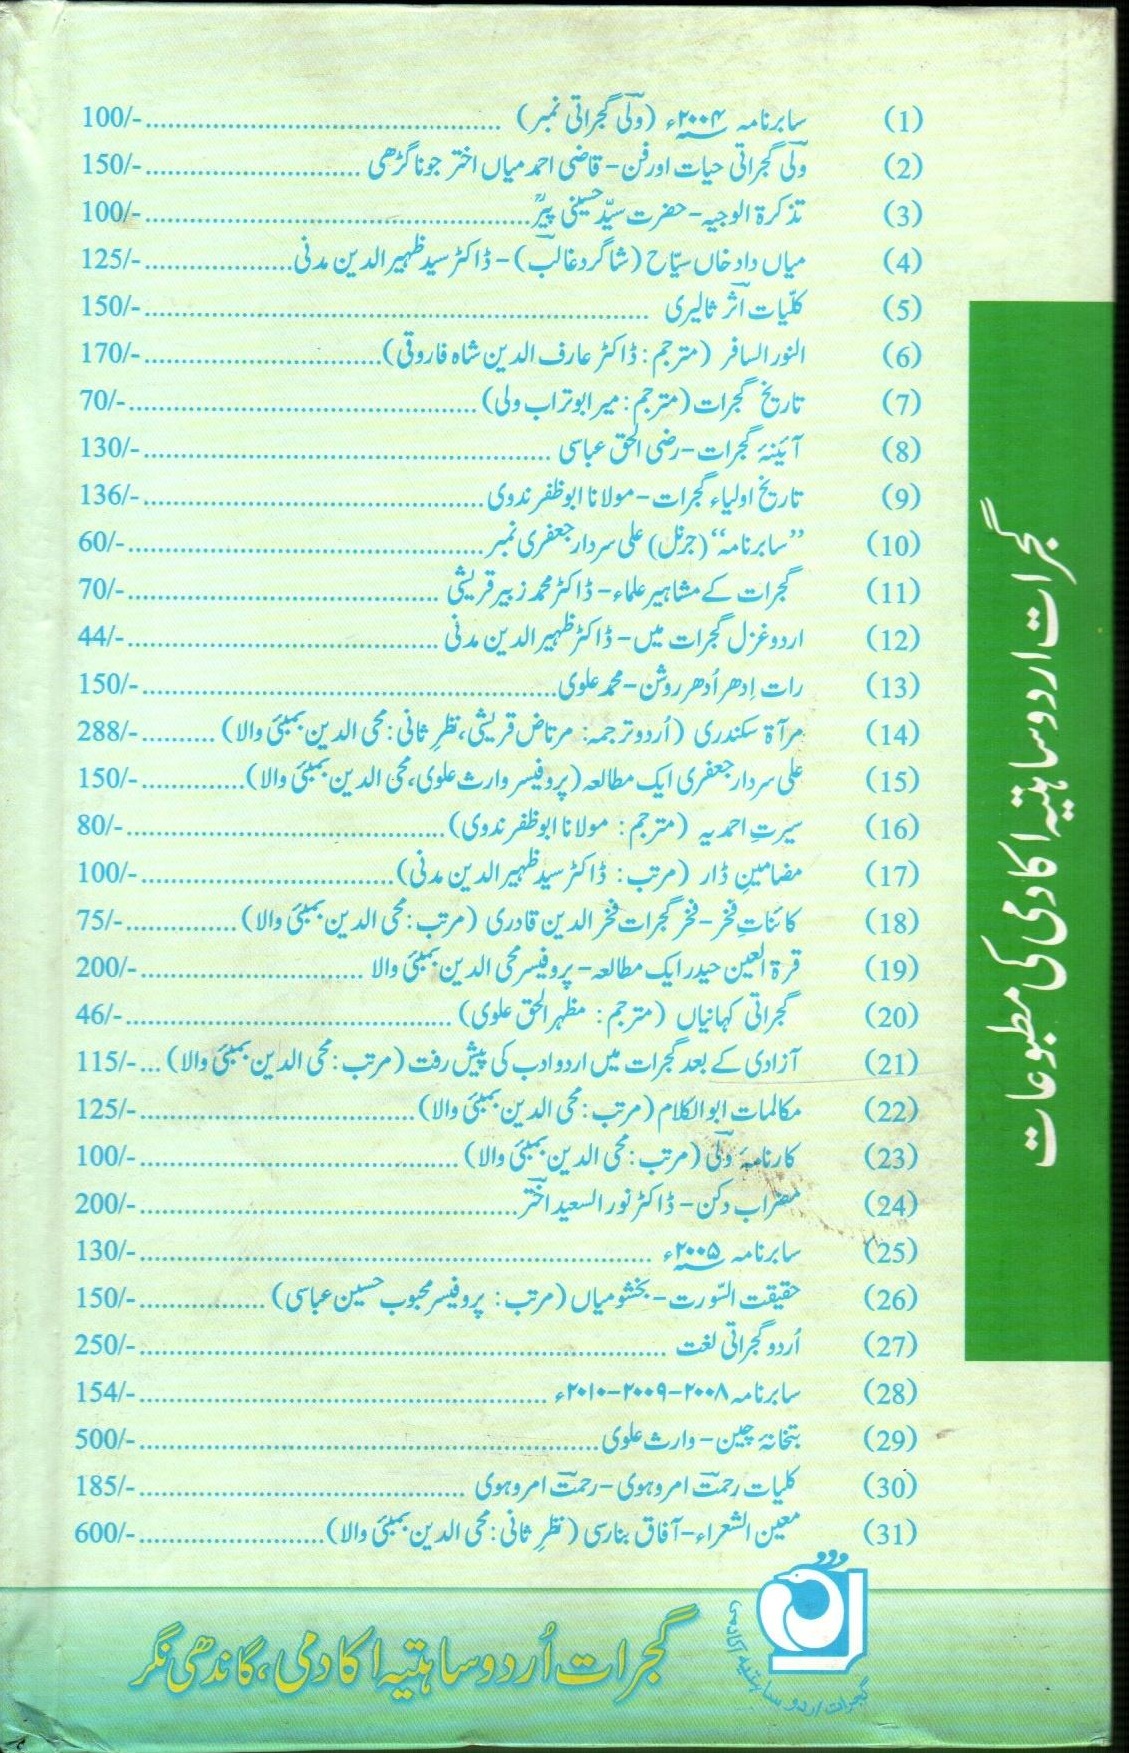 (1) سابرنامہ ۲۰۰۴ء (ولی گجراتی نمبر) ........ 100/-
(2) ولی گجراتی حیات اور فن - قاضی احمد میاں اختر جوناگڑھی ........ 150/-
(3) تذکرۃ الوجیہ - حضرت سیّد حسینی پیرؒ ........ 100/-
(4) میاں داد خاں سیّاح (شاگرد غالب) - ڈاکٹر سید ظہیر الدین مدنی ........ 125/-
(5) کلّیات اثر ثالیری ........ 150/-
(6) النور السافر (مترجم: ڈاکٹر عارف الدین شاہ فاروقی) ........ 170/-
(7) تاریخ گجرات (مترجم: میر ابوتراب ولی) ........ 70/-
(8) آئینۂ گجرات - رضی الحق عباسی ........ 130/-
(9) تاریخ اولیاء گجرات - مولانا ابو ظفر ندوی ........ 136/-
(10) ”سابرنامہ“ (جرنل) علی سردار جعفری نمبر ........ 60/-
(11) گجرات کے مشاہیر علماء - ڈاکٹر محمد زبیر قریشی ........ 70/-
(12) اردو غزل گجرات میں - ڈاکٹر ظہیر الدین مدنی ........ 44/-
(13) رات اِدھر اُدھر روشن - محمد علوی ........ 150/-
(14) مرآۃ سکندری (اُردو ترجمہ: مرتاض قریشی، نظرِ ثانی: محی الدین بمبئی والا) ........ 288/-
(15) علی سردار جعفری ایک مطالعہ (پروفیسر وارث علوی، محی الدین بمبئی والا) ........ 150/-
(16) سیرتِ احمدیہ (مترجم: مولانا ابو ظفر ندوی) ........ 80/-
(17) مضامینِ ڈار (مرتب: ڈاکٹر سید ظہیر الدین مدنی) ........ 100/-
(18) کائناتِ فخر - فخر گجرات فخر الدین قادری (مرتب: محی الدین بمبئی والا) ........ 75/-
(19) قرۃ العین حیدر ایک مطالعہ - پروفیسر محی الدین بمبئی والا ........ 200/-
(20) گجراتی کہانیاں (مترجم: مظہر الحق علوی) ........ 46/-
(21) آزادی کے بعد گجرات میں اردو ادب کی پیش رفت (مرتب: محی الدین بمبئی والا) ... 115/-
(22) مکالمات ابوالکلام (مرتب: محی الدین بمبئی والا) ........ 125/-
(23) کارنامۂ ولی (مرتب: محی الدین بمبئی والا) ........ 100/-
(24) مضراب دکن - ڈاکٹر نور السعید اختر ........ 200/-
(25) سابرنامہ ۲۰۰۵ء ........ 130/-
(26) حقیقت السّورت - بخشو میاں (مرتب: پروفیسر محبوب حسین عباسی) ........ 150/-
(27) اُردو گجراتی لغت ........ 250/-
(28) سابرنامہ ۲۰۰۸-۲۰۰۹-۲۰۱۰ء ........ 154/-
(29) بتخانۂ چین - وارث علوی ........ 500/-
(30) کلیات رحمت امروہوی - رحمت امروہوی ........ 185/-
(31) معین الشعراء - آفاق بنارسی (نظرِ ثانی: محی الدین بمبئی والا) ........ 600/-
گجرات اردو ساہتیہ اکادمی کی مطبوعات
گجرات اردو ساہتیہ اکادمی
گجرات اُردو ساہتیہ اکادمی، گاندھی نگر